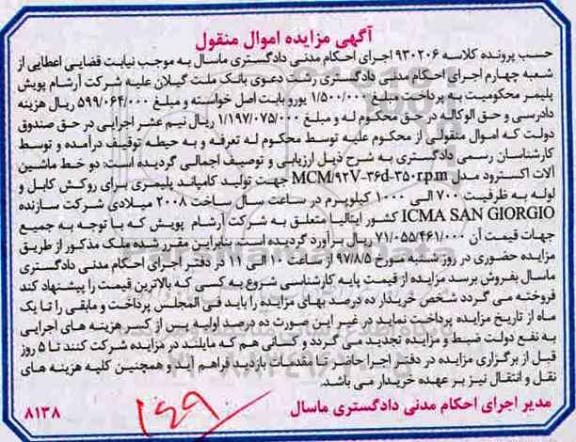 آگهی مزایده اموال منقول
حسب پرونده کلاسه ۹۳۰۲۰۶ اجرای احکام مدنی دادگستری ماسال به موجب نیابت قضایی اعطایی از
شعبه چهارم اجرای احکام مدنی دادگستری رشت دعوی بانک ملت گیلان علیه شرکت آرشام پویش
پلیمر محکومیت به پرداخت مبلغ ۱/۵۰۰/۰۰۰ یورو بابت اصل خواسته و مبلغ ۵۹۹/۰۶۴/۰۰۰ ریال هزینه
دادرسی و حق الوکاله در حق محکوم له و مبلغ ۱/۱۹۷/۰۷۵/۰۰۰ ریال نیم عشر اجرایی در حق صندوق
دولت که اموال منقولی از محکوم علیه توسط محکوم له تعرفه و به حیطه توقیف درآمده و توسط
کارشناسان رسمی دادگستری به شرح ذیل ارزیابی و توصیف اجمالی گردیده است: دو خط ماشین
آلات اکسترود مدل MCM/۹۲V-۳۶d-۳۵۰rp.m جهت تولید کامپاند پلیمری برای روکش کابل و
لوله به ظرفیت ۷۰۰ الی ۱۰۰۰ کیلوپرم در ساعت سال ساخت ۲۰۰۸ میلادی شرکت سازنده
ICMA SAN GIORGIO کشور ایتالیا متعلق به شرکت آرشام پویش که با توجه به جمیع
جهات قیمت آن ۷۱/۰۵۵/۴۶۱/۰۰۰ ریال برآورد گردیده است. بنابراین مقرر شده ملک مذکور از طریق
مزایده حضوری در روز شنبه مورخ ۹۷/۸/۵ از ساعت ۱۰ الی ۱۱ در دفتر اجرای احکام مدنی دادگستری
ماسال بفروش برسد مزایده از قیمت پایه کارشناسی شروع به کسی که بالاترین قیمت را پیشنهاد کند
فروخته می گردد شخص خریدار ده درصد بهای مزایده را باید فی المجلس پرداخت و مابقی را تا یک
ماه از تاریخ مزایده پرداخت نماید در غیر این صورت ده درصد اولیه پس از کسر هزینه های اجرایی
به نفع دولت ضبط و مزایده تجدید می گردد و کسانی هم که مایلند در مزایده شرکت کنند تا ۵ روز
قبل از برگزاری مزایده در دفتر اجرا حاضر تا مقدمات بازدید فراهم آید و همچنین کلیه هزینه های
نقل و انتقال نیز بر عهده خریدار می باشد.
مدیر اجرای احکام مدنی دادگستری ماسال ۸۱۳۸
۱۶۹